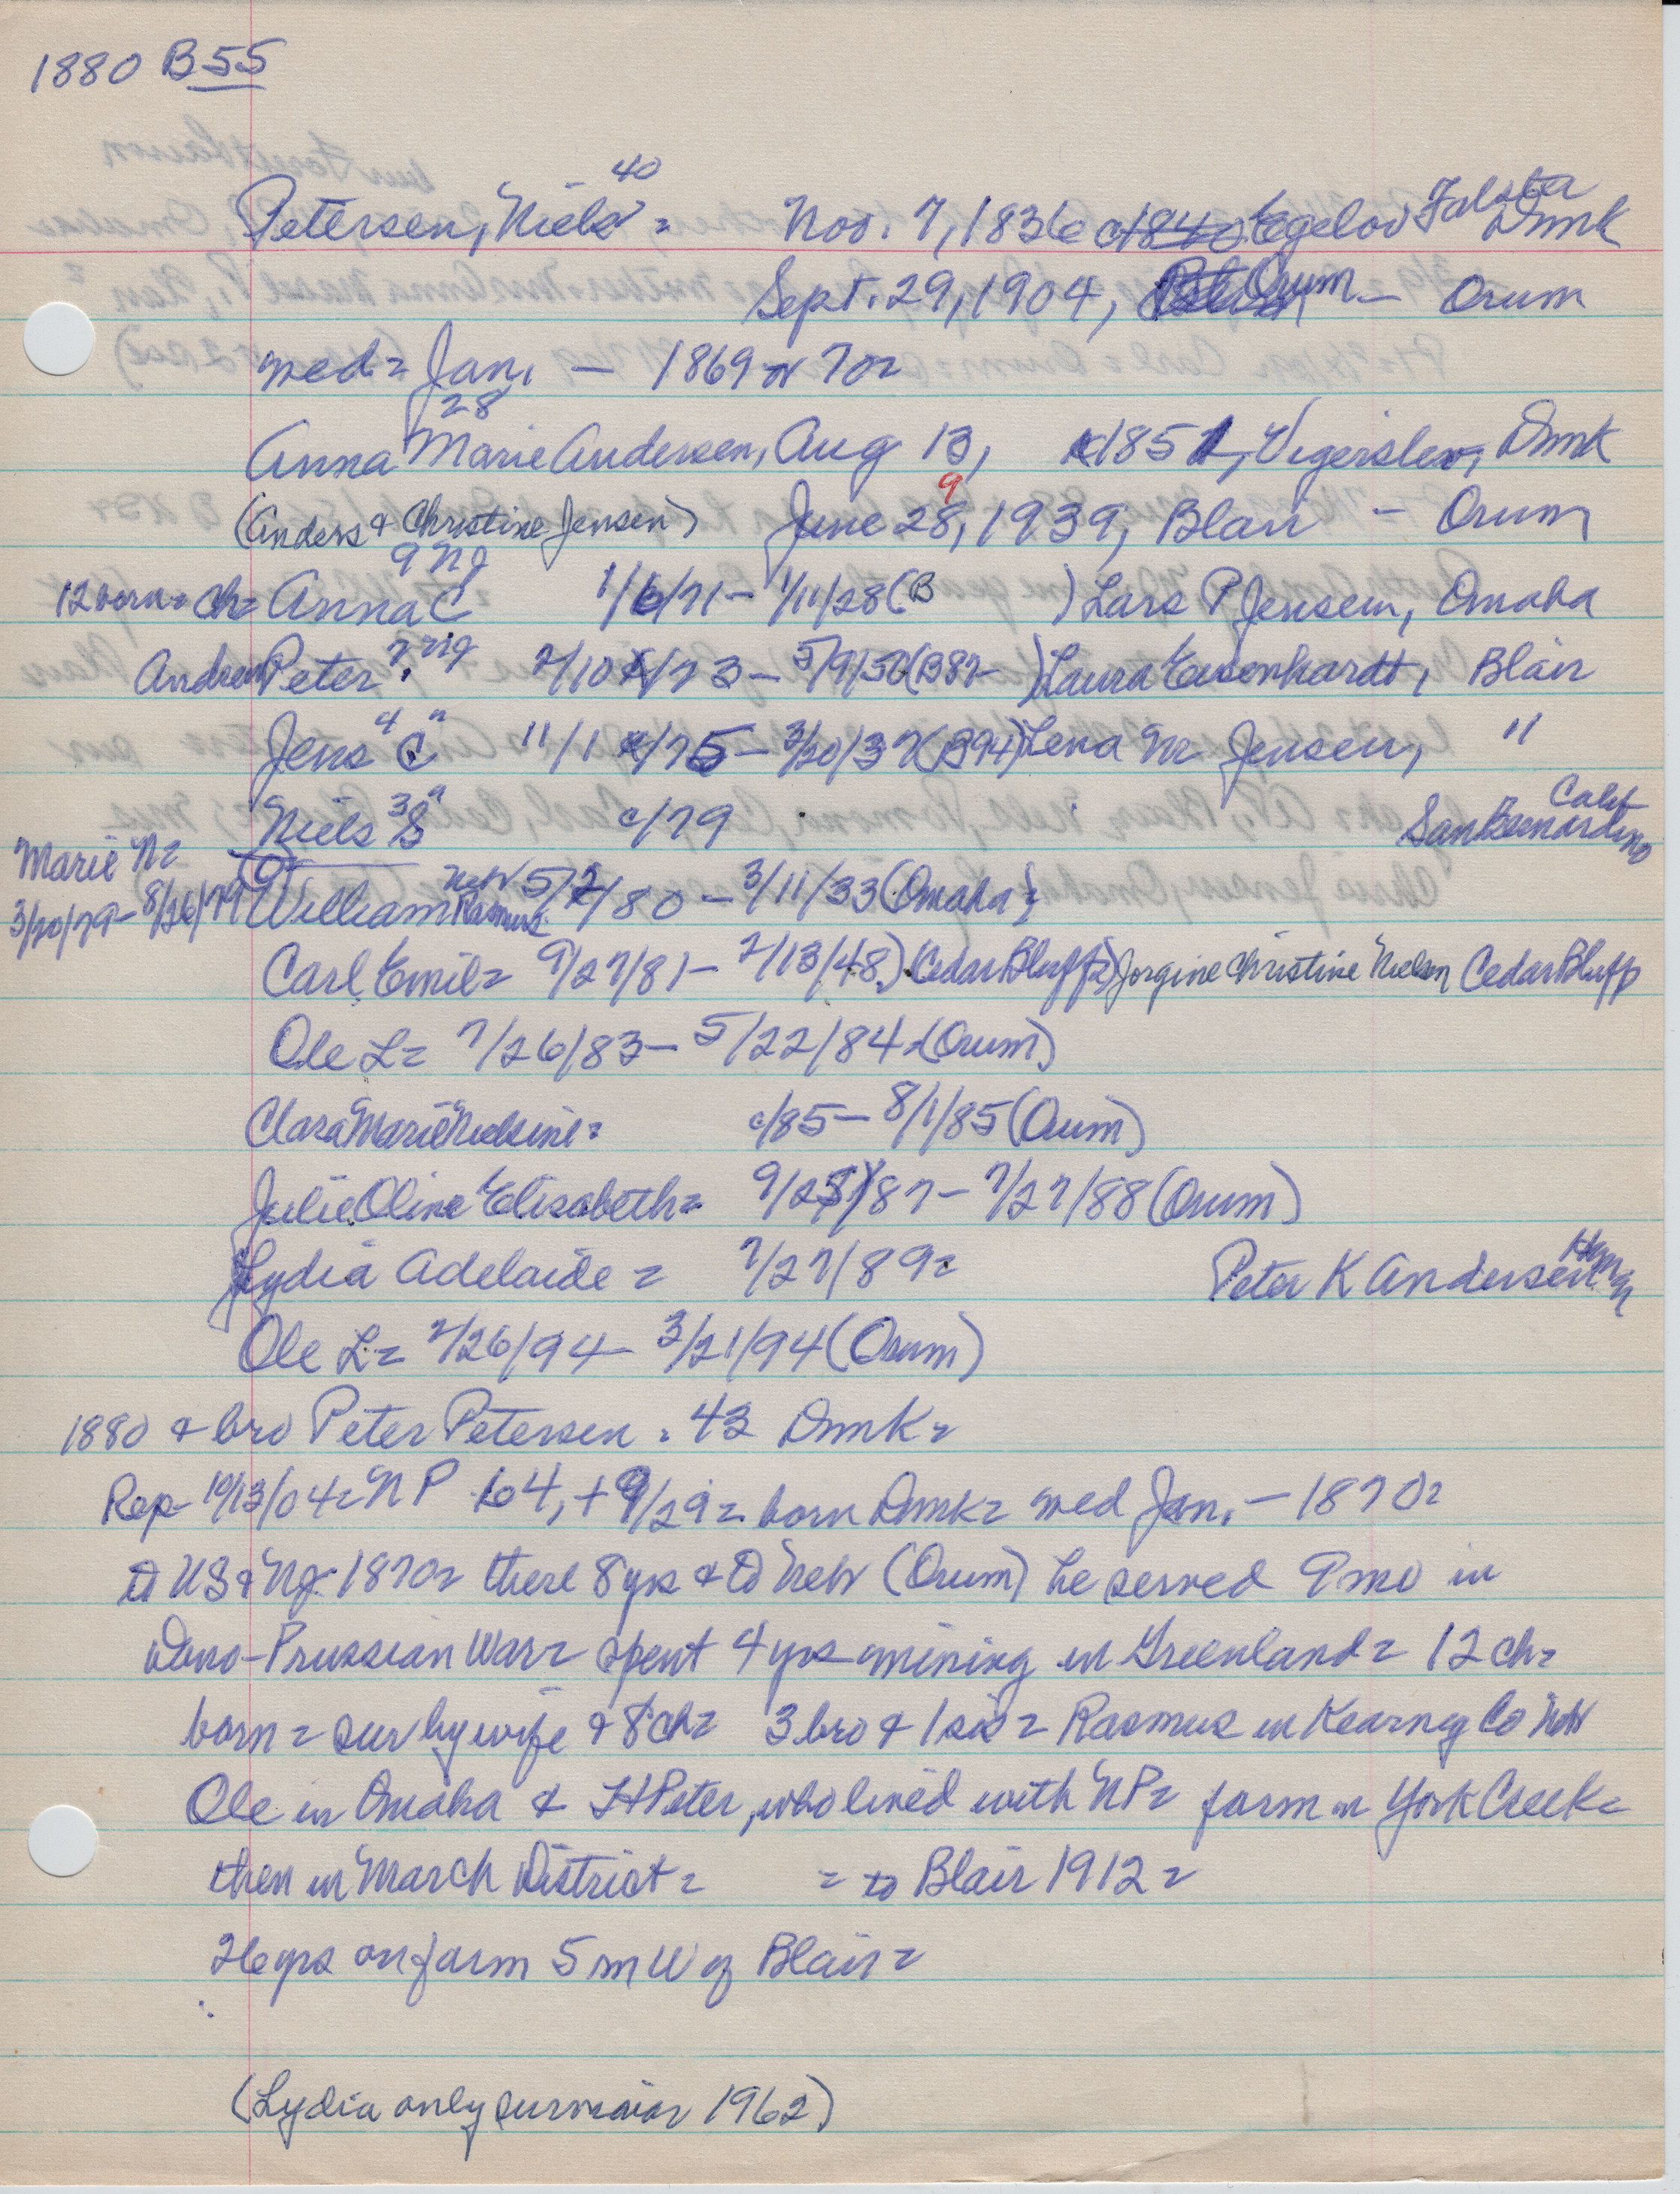 1880 B55
40
Petersen, Niels = Nov. 7, 1836 c1840 Egelov Falster Dmk
Sept. 29, 1904, Orum — Orum
med = Jan. — 1869 or 70=
28
Anna Marie Andersen, Aug 13, 1851, Vigerslev, Dmk
9
(Anders & Christine Jensen) June 28, 1939, Blair — Orum
9 NJ
12 born = ch = Anna C 1/6/71 — 1/11/28 (B ) Lars P Jensen, Omaha
Andrew Peter 7 NJ 2/10/73 — 5/9/50 (B82 ) Laura Eisenhardt, Blair
Jens C 4 " 11/1/75 — 3/20/37 (B94) Lena M Jensen, "
Niels S 3 " c/79 San Bernardino Calif
Marie N=
3/20/79 — 8/26/79 William Rasmus Neb 5/2/80 — 3/11/33 (Omaha)
Carl Emil = 9/27/81 — 2/13/48 (Cedar Bluffs) Jorgine Christine Nielsen Cedar Bluff
Ole L = 7/26/83 — 5/22/84 (Orum)
Clara Marie Nielsine = c/85 — 8/1/85 (Orum)
Julie Oline Elisabeth = 9/25/87 — 7/27/88 (Orum)
Lydia Adelaide = 7/27/89 = Peter K Andersen
Ole L = 2/26/94 — 3/21/94 (Orum)
1880 & bro Peter Petersen . 43 Dmk =
Rep — 10/13/04 = NP 64, + 9/29 = born Dmk = med Jan. — 1870 =
to US & NJ 1870 = there 8 yrs & to Neb (Orum) he served 9 mo in
Dano-Prussian War = spent 4 yrs mining in Greenland = 12 ch =
born = sur by wife & 8 ch = 3 bro & 1 sis = Rasmus in Kearney Co Neb
Ole in Omaha & H Peter, who lived with NP = farm in York Creek =
then in March District = = to Blair 1912 =
26 yrs on farm 5 m W of Blair =
(Lydia only survivor 1962)